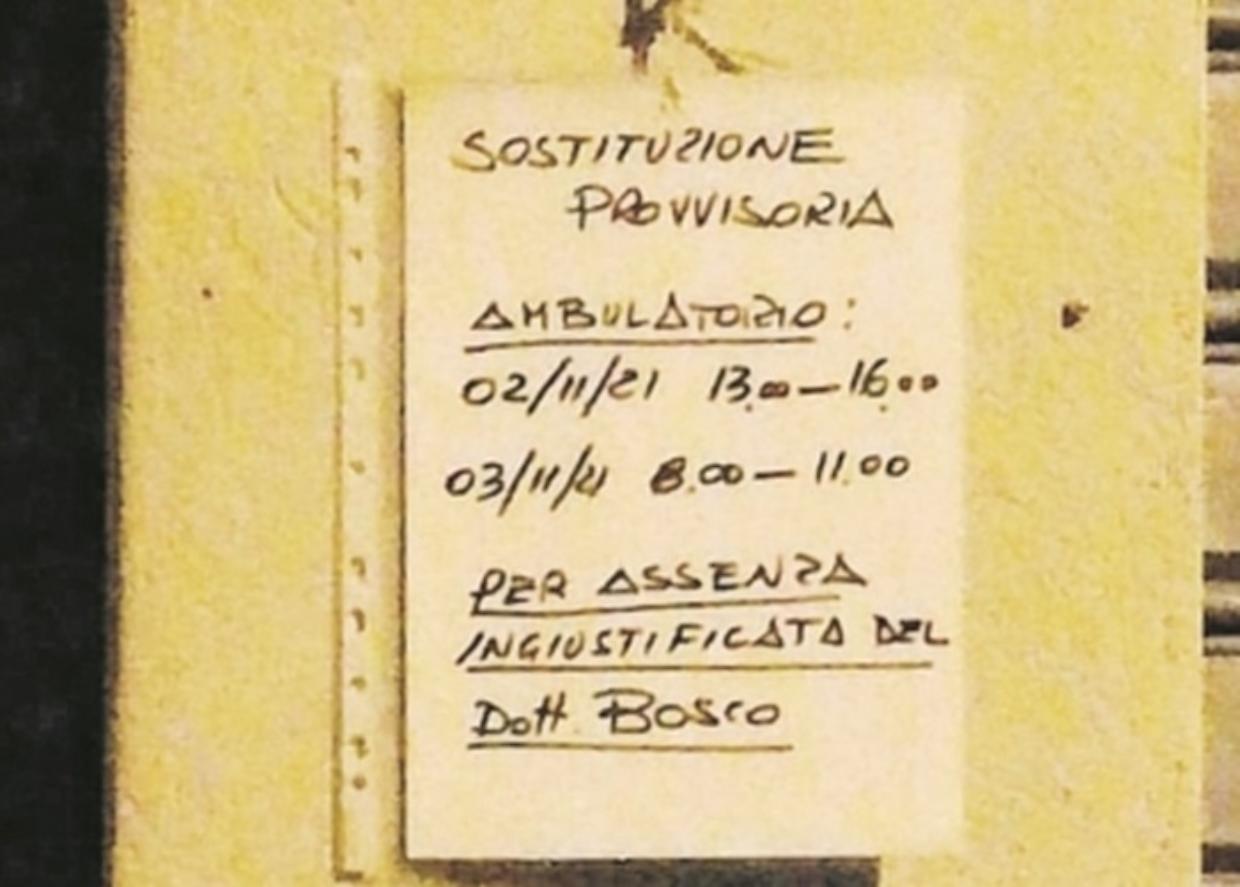 SOSTITUZIONE
PROVVISORIA
AMBULATORIO:
02/11/21 13.00-16.00
03/11/21 8.00-11.00
PER ASSENZA
INGIUSTIFICATA DEL
Dott. Bosco